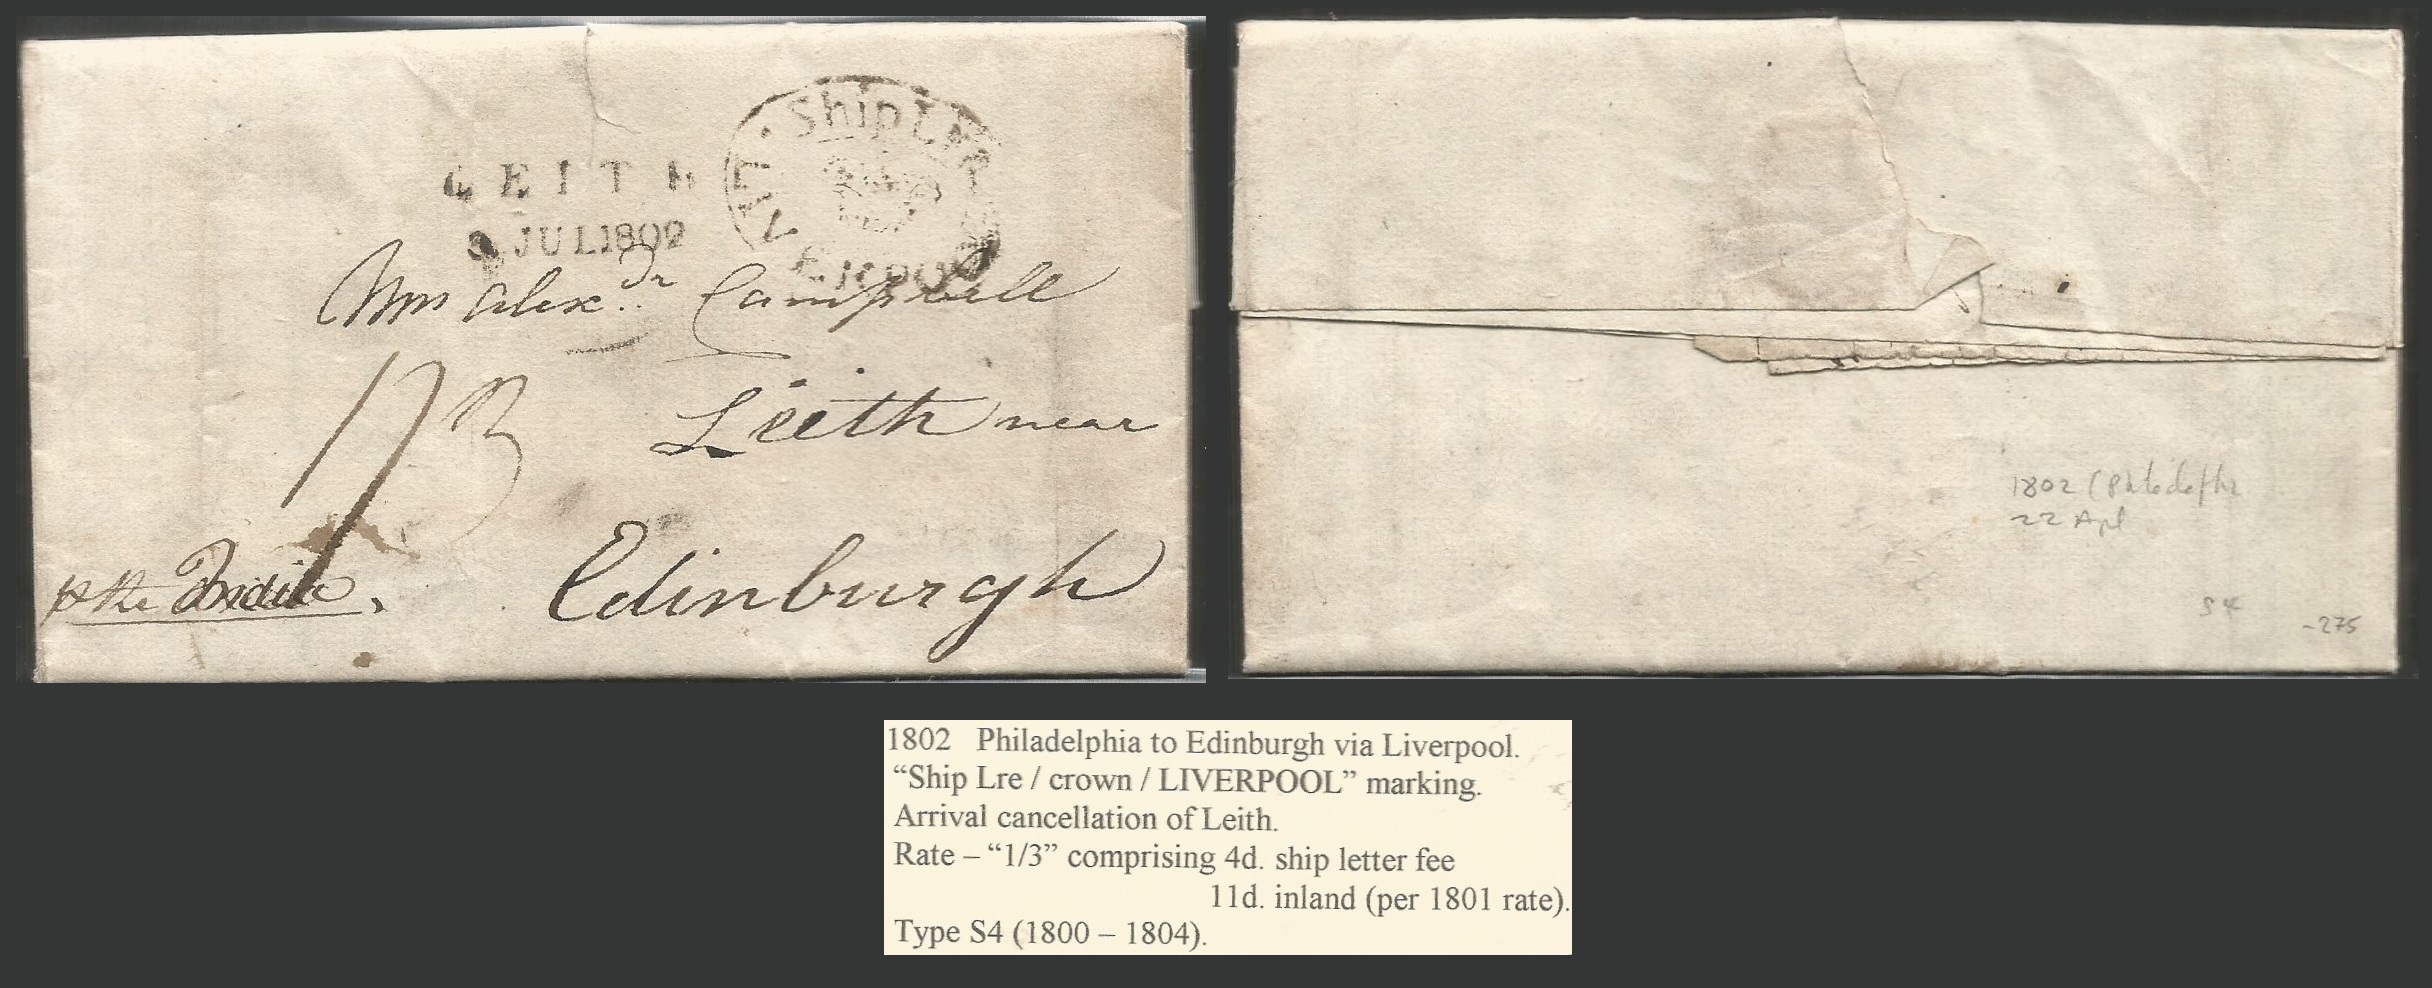 Ship Lre
LIVERPOOL
LEITH
JUL 1802
Campbell
Leith near
1/3
Edinburgh
p the India.
1802 (Philadelphia
22 Apl
S4
-275
1802 Philadelphia to Edinburgh via Liverpool.
“Ship Lre / crown / LIVERPOOL” marking.
Arrival cancellation of Leith.
Rate – “1/3” comprising 4d. ship letter fee
11d. inland (per 1801 rate).
Type S4 (1800 – 1804).